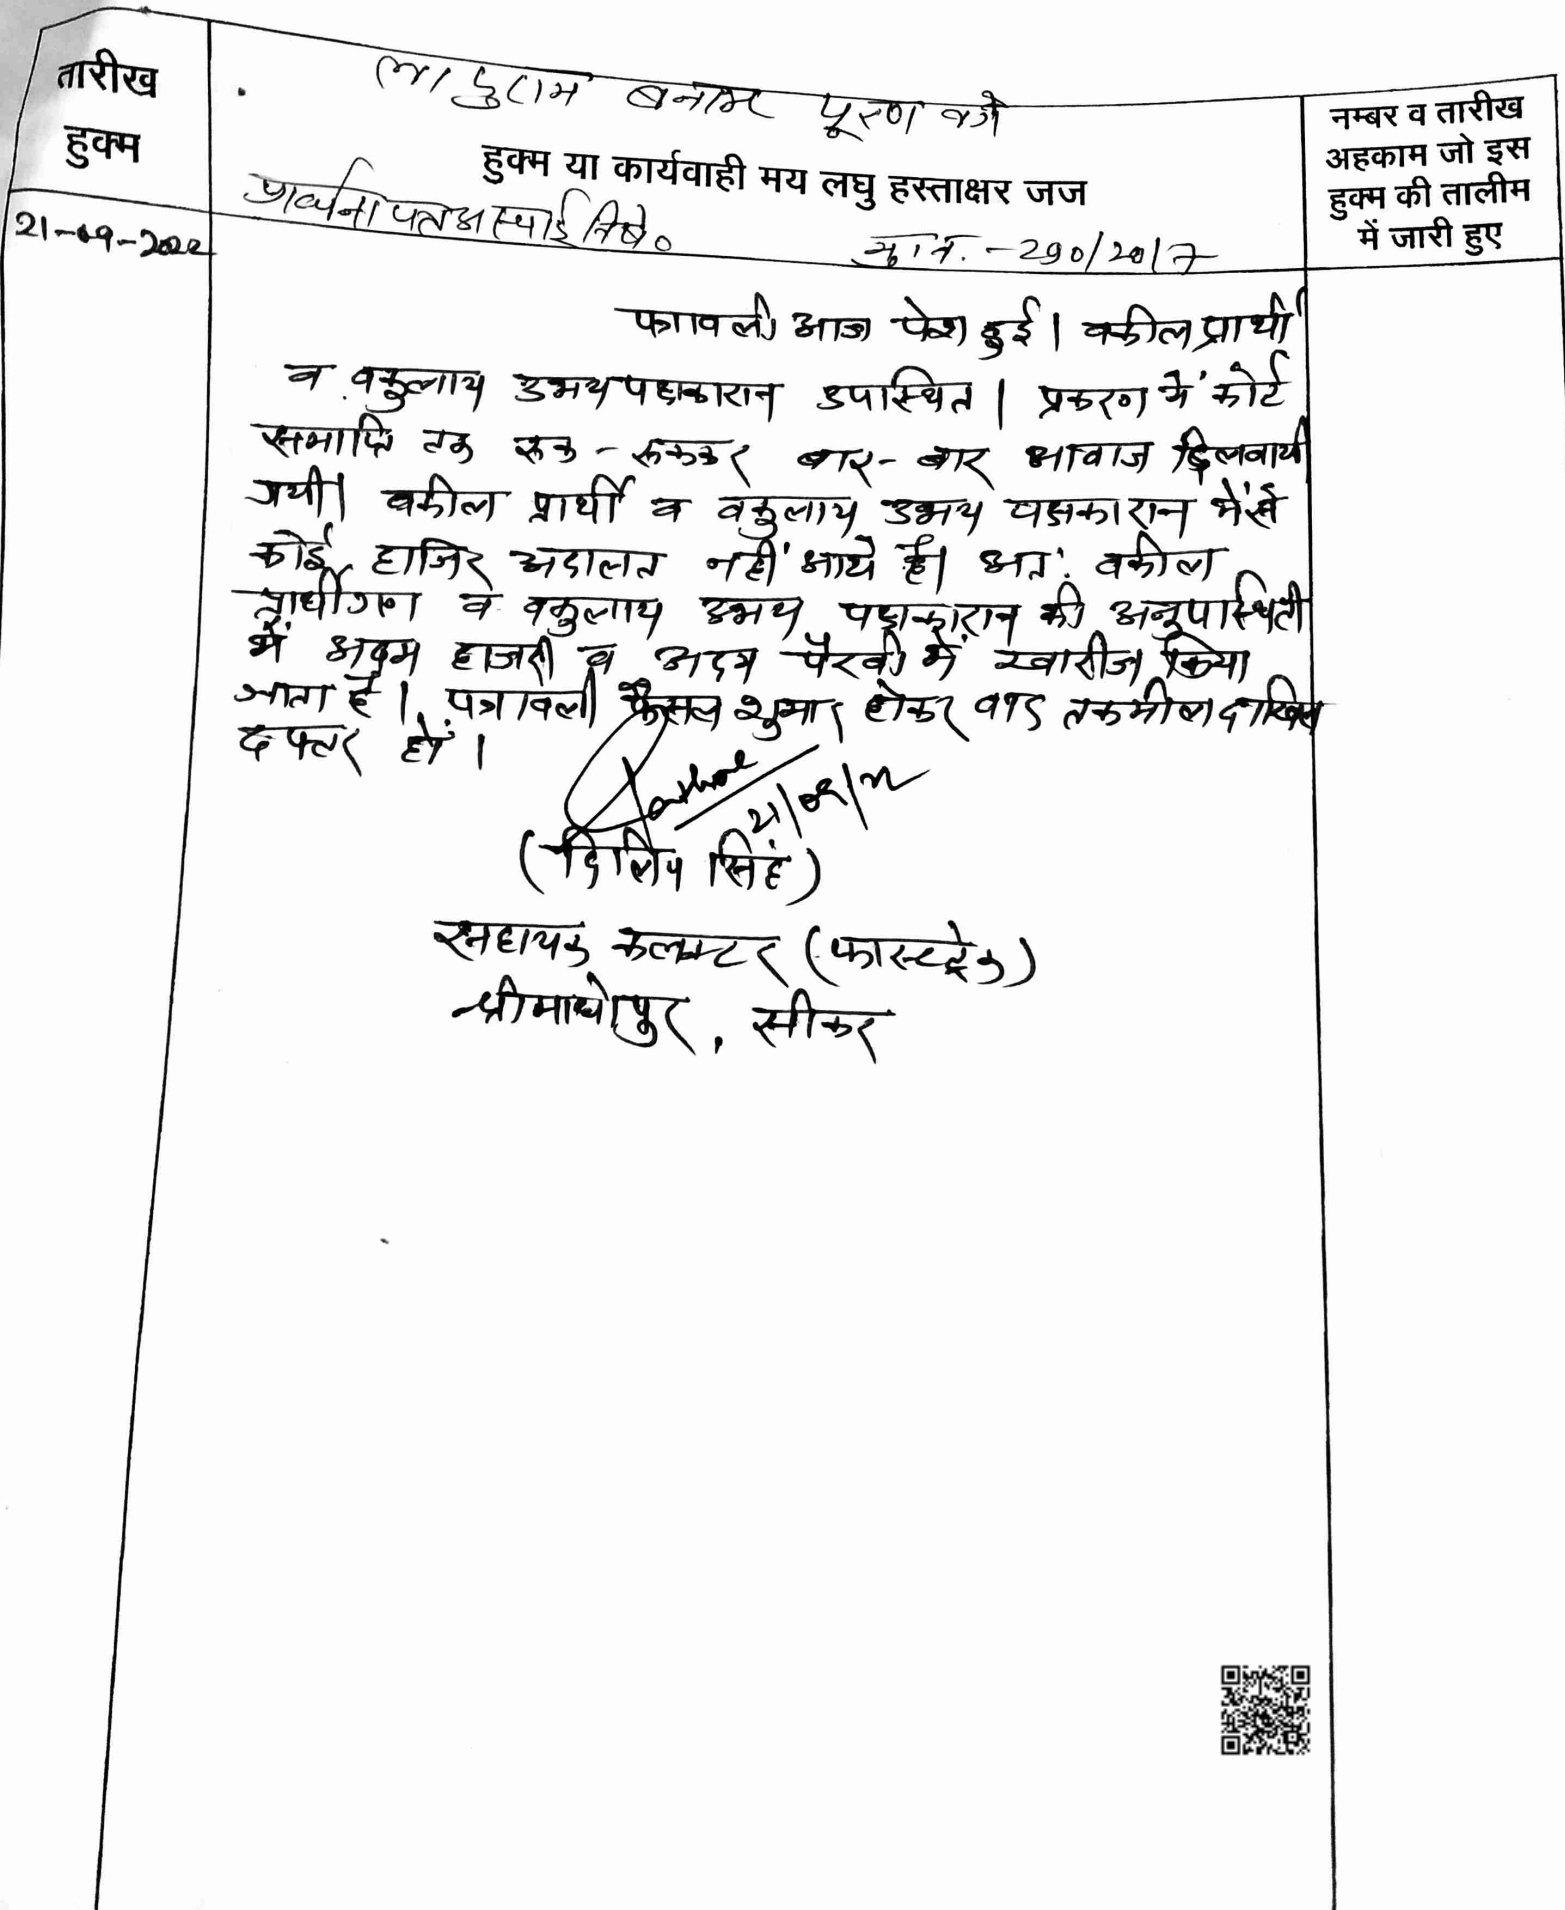 तारीख
हुक्म
बनाम पूरण
हुक्म या कार्यवाही मय लघु हस्ताक्षर जज
नम्बर व तारीख
अहकाम जो इस
हुक्म की तालीम
में जारी हुए
प्रार्थना पत्र अस्थाई निषे०
21-09-2022
मु.न. - 290/2017
आज पेश हुई। वकील प्रार्थी
व वकुलाय उभय पक्षकारान उपस्थित। प्रकरण में कोर्ट
समाप्ति तक रूक - रूककर बार - बार आवाज दिलवायी
गयी। वकील प्रार्थी व वकुलाय उभय पक्षकारान में से
कोई हाजिर अदालत नहीं आये है। अत: वकील
प्रार्थीगण व वकुलाय उभय पक्षकारान की अनुपस्थिती
में अदम हाजरी व अदम पैरवी में खारीज किया
जाता है। पत्रावली फैसल शुमार होकर बाद तकमील दाखिल
दफ्तर हो।
21/09/22
(दिलिप सिंह)
सहायक कलक्टर (फास्टट्रेक)
श्रीमाधोपुर, सीकर